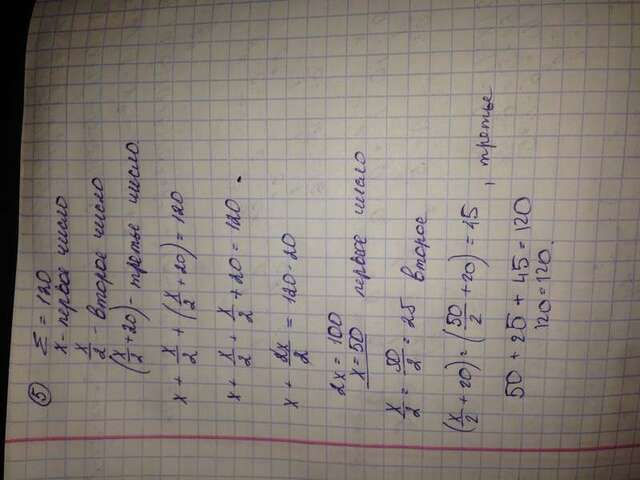 ⑤ Σ = 120
x - первое число
x/2 - второе число
(x/2 + 20) - третье число
x + x/2 + (x/2 + 20) = 120
x + x/2 + x/2 + 20 = 120
x + 2x/2 = 120 - 20
2x = 100
x = 50 первое число
x/2 = 50/2 = 25 второе
(x/2 + 20) = (50/2 + 20) = 45, третье
50 + 25 + 45 = 120
120 = 120.